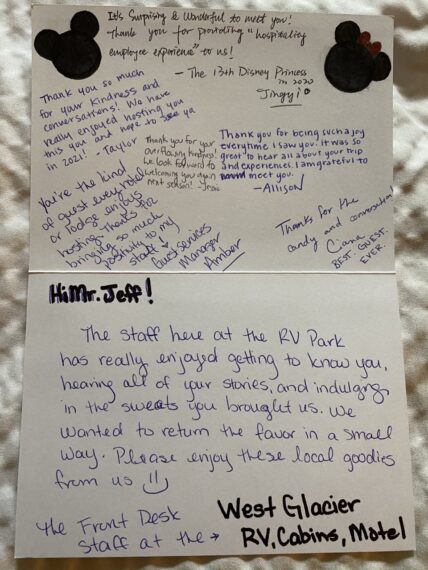 It's Surprising & Wonderful to meet you!
Thank you for providing "hospitality
employee experience" to us!
- The 13th Disney Princess
in 2020
Jingyi
Thank you so much
for your kindness and
conversations! We have
really enjoyed hosting you
this you and hope to see ya
in 2021! - Taylor
Thank you for your
overflowing kindness!
We look forward to
welcoming you again
next season! -
Thank you for being such a joy
everytime I saw you. It was so
great to hear all about your trip
and experiences. I am grateful to
meet you.
- Allison
You're the kind
of guest every hotel
or lodge enjoys
hosting. Thanks for
bringing so much
positivity to my
staff
Guest Services
Manager
Amber
Thanks for the
candy and conversation!
Ciana
BEST. GUEST.
EVER.
Hi Mr. Jeff!
The staff here at the RV Park
has really enjoyed getting to know you,
hearing all of your stories, and indulging
in the sweets you brought us. We
wanted to return the favor in a small
way. Please enjoy these local goodies
from us
The Front Desk
staff at the →
West Glacier
RV, Cabins, Motel